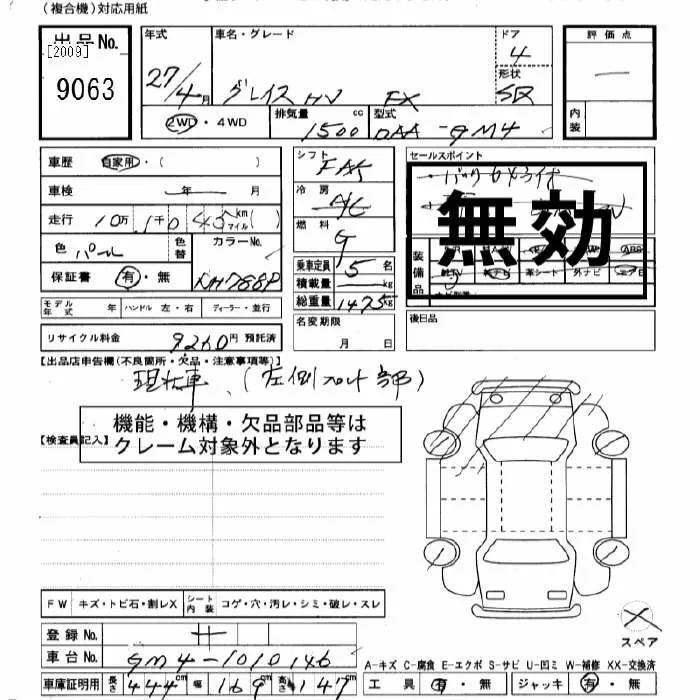 (複合機)対応用紙
出品No.
[2009]
9063
年式
27/4月
車名・グレード
グレイス HV FX
ドア
4
形状
SD
評価点
内装
2WD・4WD
排気量
1500 cc
型式
DAA-GM4
車歴 自家用・( )
車検 年 月
走行 10万 1千 km マイル( )
色 パール
色替
カラーNo.
NH788P
保証書 有・無
シフト
FAT
冷房
A/C
燃料
G
乗車定員 5 名
積載量 kg
総重量 1475 kg
セールスポイント
無効
装備品
革シート 外ナビ
モデル年式 年 ハンドル 左・右 ディーラー・並行
リサイクル料金 9260円 預託済
名変期限
月 日
後日品
【出品店申告欄(不良箇所・欠品・注意事項等)】
現状車、(左側フロント部)
機能・機構・欠品部品等は
クレーム対象外となります
【検査員記入】
FW キズ・トビ石・割レX シート内装 コゲ・穴・汚レ・シミ・破レ・スレ
登録No.
車台No. GM4-1010146
車庫証明用 長さ 444cm 幅 169cm 高さ 147cm
スペア
A-キズ C-腐食 E-エクボ S-サビ U-凹ミ W-補修 XX-交換済
工具 有・無 ジャッキ 有・無